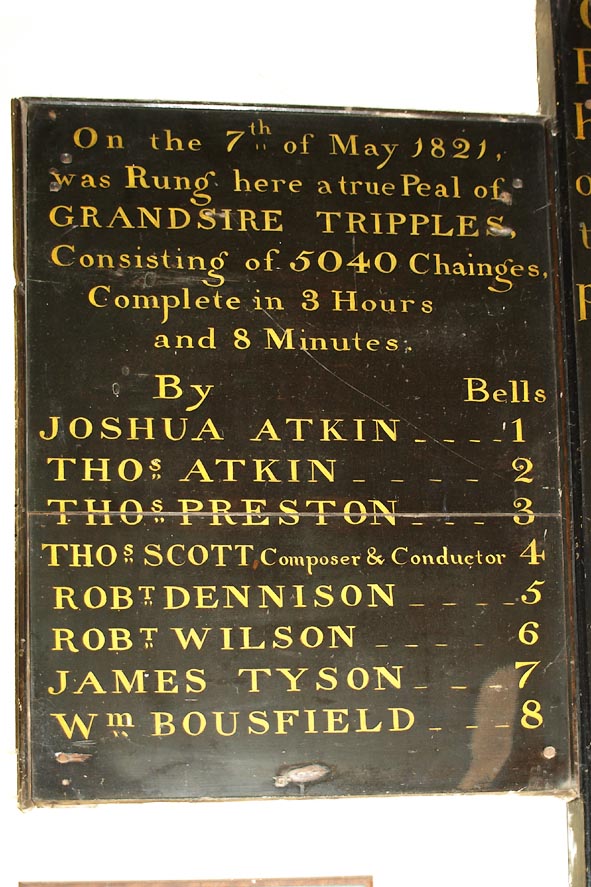 On the 7th of May 1821,
was Rung here a true Peal of
GRANDSIRE TRIPPLES,
Consisting of 5040 Chainges,
Complete in 3 Hours
and 8 Minutes.
By Bells
JOSHUA ATKIN 1
THOS ATKIN 2
THOS PRESTON 3
THOS SCOTT Composer & Conductor 4
ROBT DENNISON 5
ROBT WILSON 6
JAMES TYSON 7
Wm BOUSFIELD 8